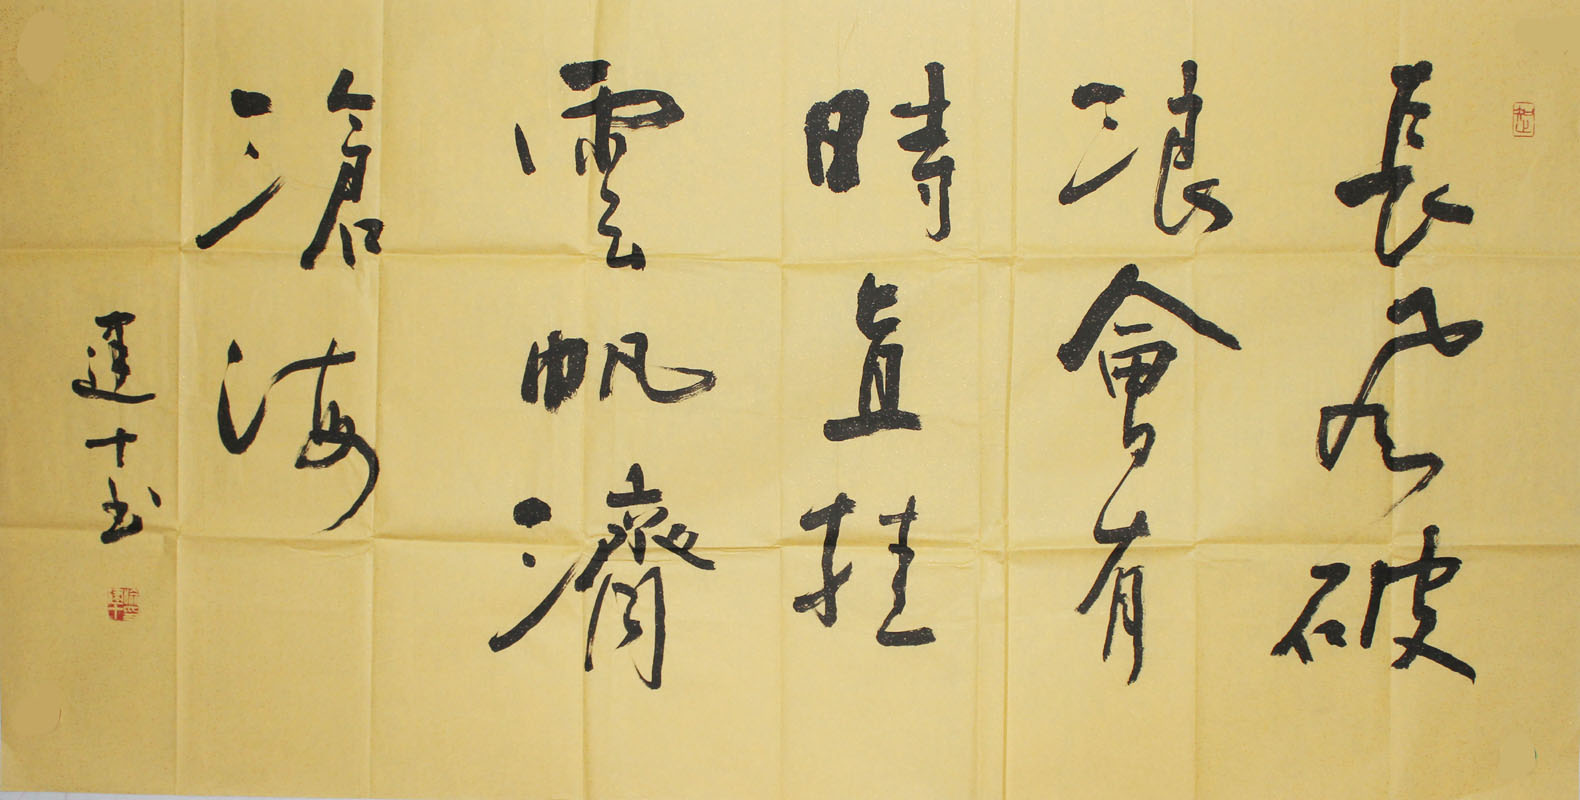 長風破
浪會有
時直挂
雲帆濟
滄海
運十书